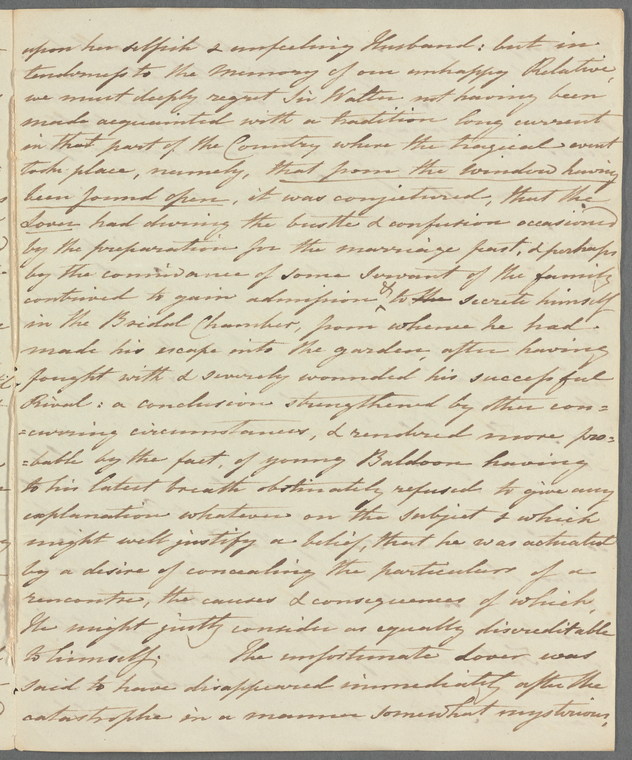 upon her selfish & unfeeling Husband: but in
tenderness to the memory of our unhappy Relative,
we must deeply regret Sir Walter not having been
made acquainted with a tradition long current
in that part of the Country where the tragical event
took place, namely, that from the window having
been found open, it was conjectured, that the
Lover had during the bustle & confusion occasioned
by the preparation for the marriage feast, & perhaps
by the connivance of some Servant of the family
contrived to gain admission & to the secrete himself
in the Bridal Chamber, from whence he had
made his escape into the garden, after having
fought with & severely wounded his successful
Rival: a conclusion strengthened by other con=
=curring circumstances, & rendered more pro=
=bable by the fact, of young Baldoon having
to his latest breath obstinately refused to give any
explanation whatever on the subject & which
might well justify a belief, that he was actuated
by a desire of concealing the particulars of a
rencontre, the causes & consequences of which,
He might justly consider as equally discreditable
to himself. The unfortunate Lover was
said to have disappeared immediately after the
catastrophe in a manner somewhat mysterious,